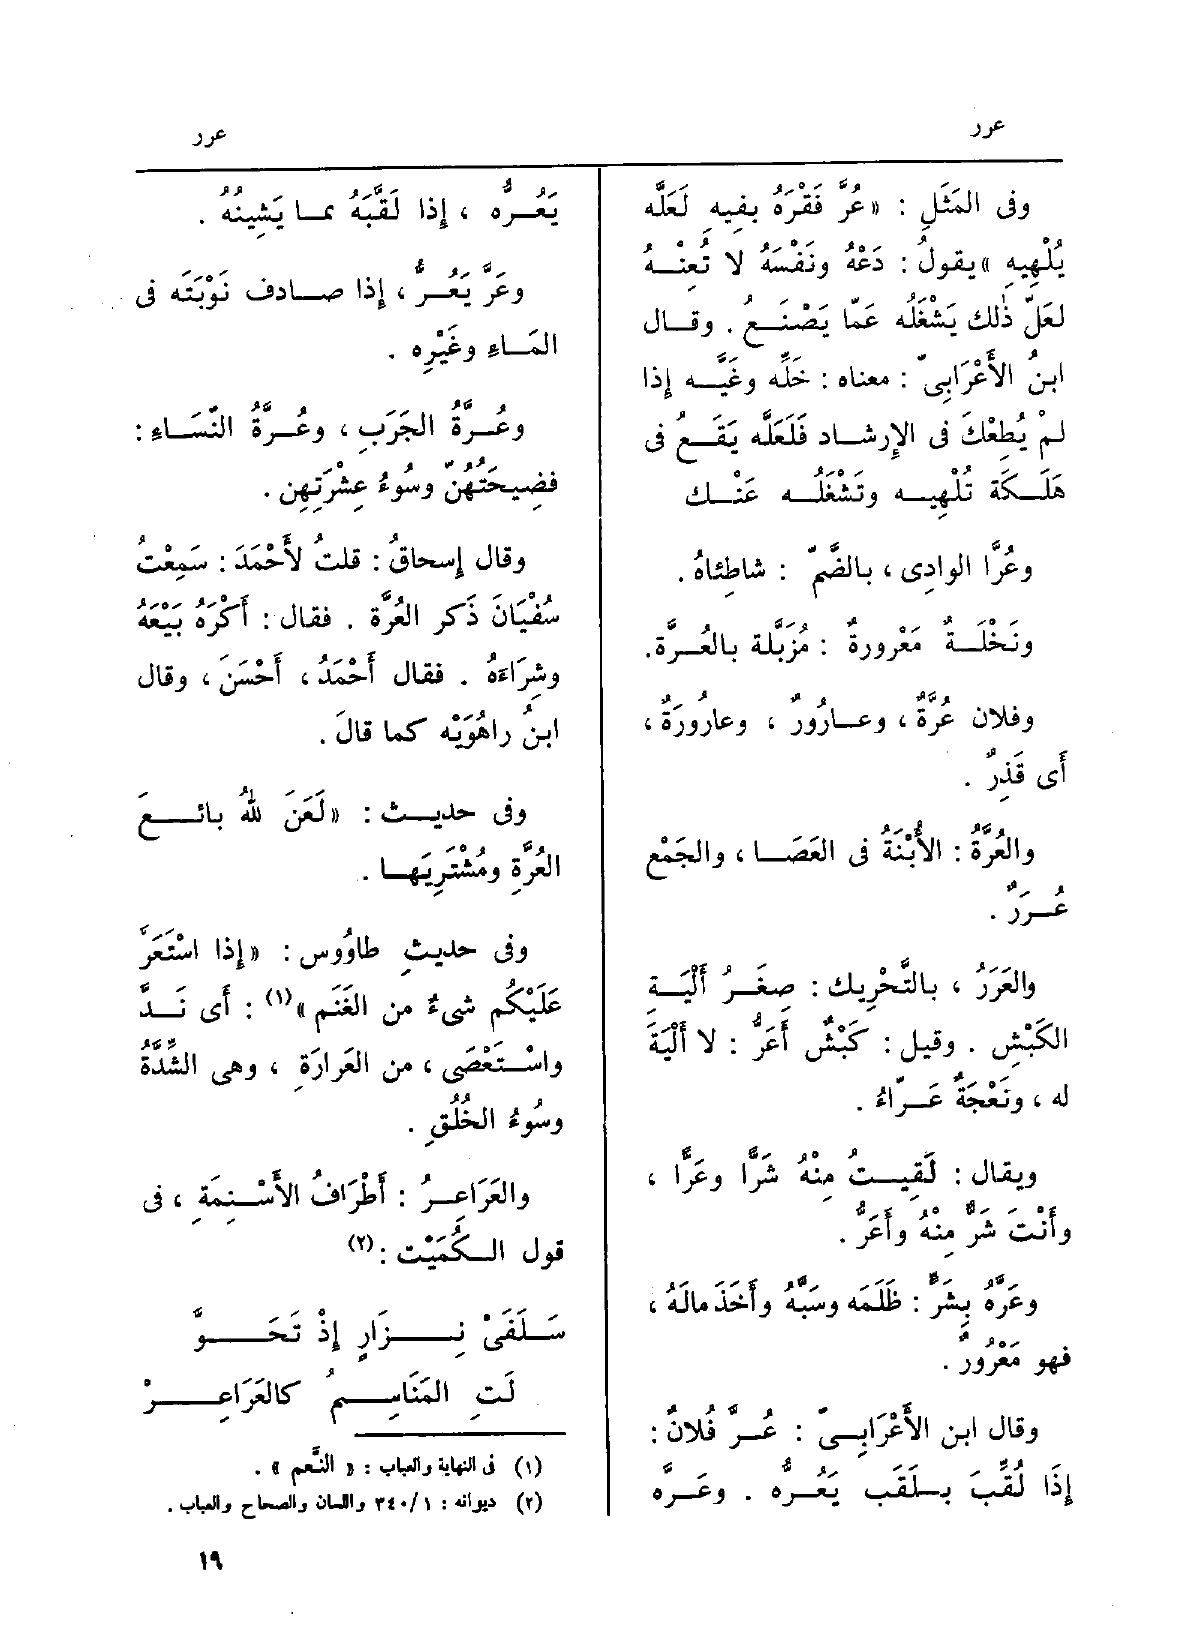 عرر
عرر
وفى المَثَلِ : «عُرَّ فَقْرَهُ بفِيه لَعَلَّه
يُلْهِيهِ» يقولُ : دَعْهُ ونَفْسَهُ لا تُعِنْهُ
لعَلّ ذٰلك يَشْغَلُه عَمّا يَصْنَعُ . وقال
ابنُ الأَعْرَابِىّ : معناه : خَلِّه وغَيَّه إذا
لمْ يُطِعْكَ فى الإِرشاد فَلَعَلَّه يَقَعُ فى
هَلَكَة تُلْهِيه وتَشْغَلُه عَنْك
وعُرَّا الوادِى ، بالضَّمّ : شاطِئاهُ .
ونَخْلَةٌ مَعْرورةٌ : مُزَبَّلة بالعُرَّة.
وفلان عُرَّةٌ ، وعارُورٌ ، وعارُورَةٌ ،
أَى قَذِرٌ .
والعُرَّةُ : الأُبْنَةُ فى العَصَا ، والجَمْع
عُرَرٌ .
والعَرَرُ ، بالتَّحْرِيك : صِغَرُ أَلْيَةِ
الكَبْشِ . وقيل : كَبْشٌ أَعَرُّ : لا أَلْيَةَ
له ، ونَعْجَةٌ عَرّاءُ .
ويقال : لَقِيتُ مِنْهُ شَرًّا وعَرًّا ،
وأَنْتَ شَرٌّ مِنْهُ وأَعَرُّ .
وعَرَّهُ بِشَرٍّ : ظَلَمَه وسَبَّهُ وأَخَذَ مالَهُ ،
فهو مَعْرُورٌ .
وقال ابن الأَعْرَابِىّ : عُرَّ فُلانٌ :
إِذَا لُقِّبَ بلَقَب يَعُرُّه . وعَرَّه
يَعُرُّه ، إِذا لَقَّبَهُ بما يَشِينُهُ .
وعَرَّ يَعُرُّ ، إِذا صادف نَوْبَتَه فى
المَاءِ وغَيْرِه .
وعُرَّةُ الجَرَبِ ، وعُرَّةُ النِّسَاءِ :
فضِيحَتُهُنّ وسُوءُ عِشْرَتِهِن .
وقال إِسحاقُ : قلتُ لأَحْمَدَ : سَمِعْتُ
سُفْيَانَ ذَكر العُرَّة . فقال : أَكْرَهُ بَيْعَهُ
وشِرَاءَهُ . فقال أَحْمَدُ ، أَحْسَنَ ، وقال
ابنُ راهُوَيْه كما قالَ .
وفى حديث : «لَعَنَ للهُ بائعَ
العُرَّةِ ومُشْتَرِيَها .
وفى حديثِ طاوُوس : «إِذا اسْتَعَرَّ
عَلَيْكُم شىءٌ من الغَنَم»(١) : أَى نَدَّ
واسْتَعْصَى ، من العَرارَةِ ، وهى الشِّدَّةُ
وسُوءُ الخُلُقِ .
والعَرَاعِرُ : أَطْرَافُ الأَسْنِمَةِ ، فى
قول الكُمَيْت :(٢)
سَلَفَىْ نِزَارٍ إِذْ تَحَوَّ
لَتِ المَنَاسِمُ كالعَرَاعِرْ
(١) فى النهاية والعباب : « النَّعم » .
(٢) ديوانه : ١ /٣٤٠ واللسان والصحاح والعباب .
١٩